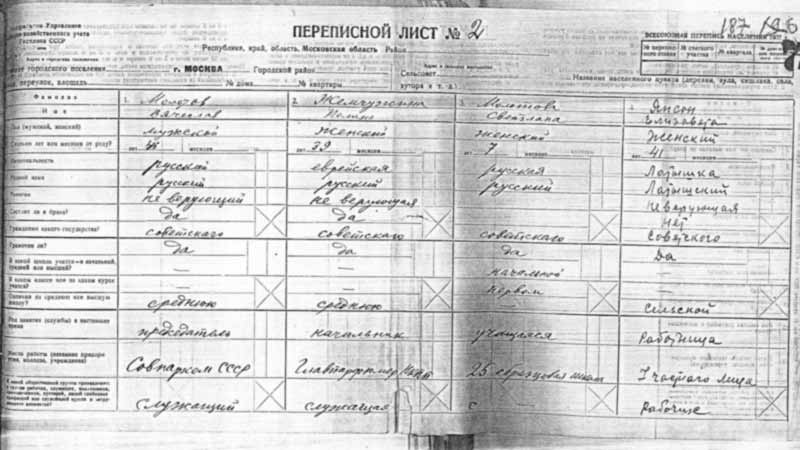 ПЕРЕПИСНОЙ ЛИСТ № 2
187
Управление
хозяйственного учета
Госплана СССР
ВСЕСОЮЗНАЯ ПЕРЕПИСЬ НАСЕЛЕНИЯ
Республика, край, область, Московская область Район
городского поселения г. МОСКВА Городской район
Сельсовет
Название населенного пункта (деревня, хутор, село,
переулок, площадь № дома № квартиры хутора и т. д.
Фамилия 1. Молотов 2. Жемчужина 3. Молотова Янсон
Имя Вячеслав Полина Светлана Елизавета
Пол (мужской, женский) мужской женский женский женский
Сколько лет или месяцев от роду? лет месяцев 39 месяцев 7 месяцев 41 месяцев
Национальность русский еврейская русская Латышка
Родной язык русский русский русский Латышский
Религия не верующий не верующая Неверующая
Состоит ли в браке? да да Нет
Гражданин какого государства? советского советского советского Советского
Грамотен ли? да да да Да
В какой школе учится — начальной, средней или высшей? — — начальной —
В каком классе или на каком курсе учится? — — первом —
Окончил ли среднюю или высшую школу? среднюю среднюю сельской
Род занятия (службы) в настоящее время председатель начальник учащаяся Работница
Место работы (название предприятия, колхоза, учреждения) Совнарком СССР Главпарфюмер 25 образцовая школа У частного лица
служащий служащая с Рабочие